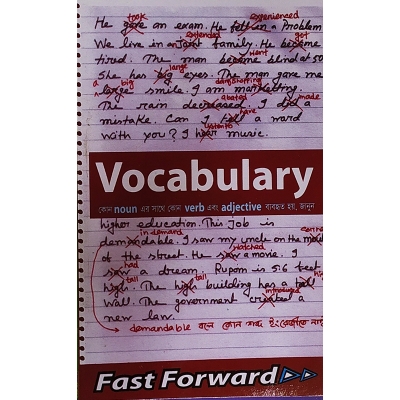 took experienced
He gave an exam. He fell in a Problem
extended got
We live in a Joint family. He became
went
tired. The man became blind at 50
large
She has big eyes. The man gave me
a big
large smile. I am marketing.
abated made
The rain decreased. I did a
have
mistake. Can I tell a word
listen to
with you? I hear music.
Vocabulary
কোন noun এর সাথে কোন verb এবং adjective ব্যবহৃত হয়, জানুন
higher education. This Job is
in demand
demandable. I saw my uncle on the
watched
of the street. He saw a movie. I
had
saw a dream. Rupom is 5.6 feet
tall
high. The high building has a tall
introduced
wall. The government created a
new law.
demandable বলে কোন শব্দ ইংরেজীতে
Fast Forward